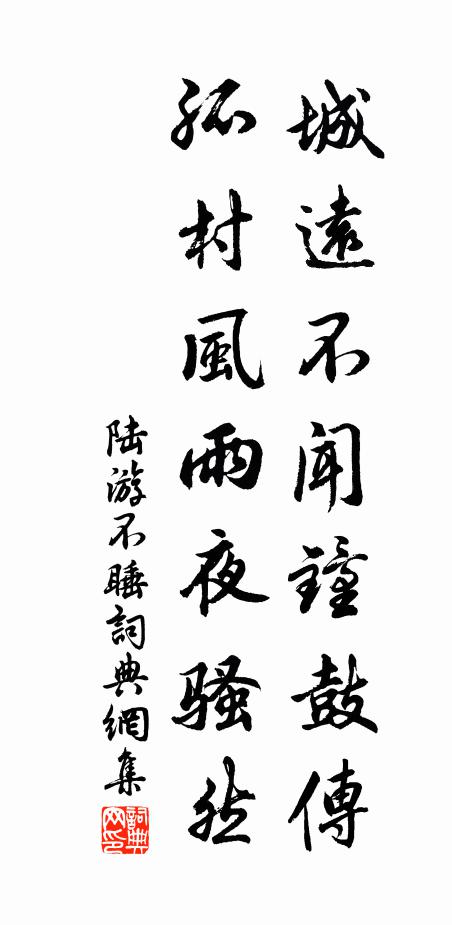 城遠不聞鐘鼓傳
孤村風雨夜騷然
陸游不睡詞典網集
詞典网印